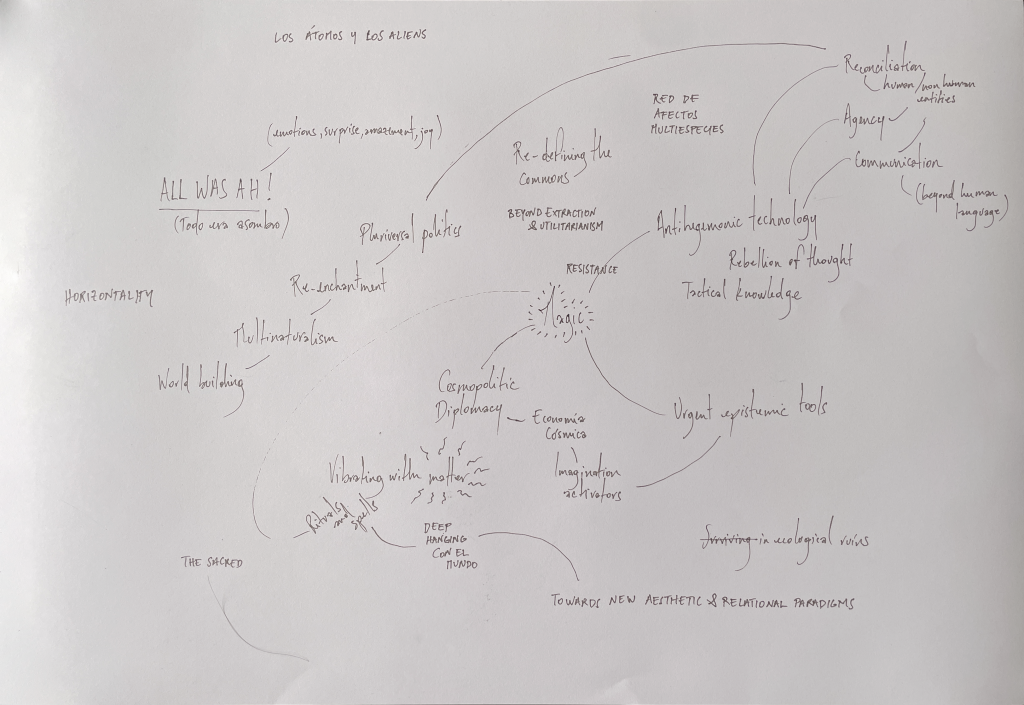 LOS ÁTOMOS Y LOS ALIENS
Reconciliation
human/non human
entities
Agency
Communication
(beyond human
language)
RED DE
AFECTOS
MULTIESPECIES
(emotions, surprise, amazement, joy)
Re-defining the
Commons
ALL WAS AH!
(Todo era asombro)
BEYOND EXTRACTION
& UTILITARIANISM
Antihegemonic technology
Pluriversal politics
Rebellion of thought
RESISTANCE
Tactical knowledge
Re-enchantment
HORIZONTALITY
Magic
Multinaturalism
World building
Cosmopolitic
Diplomacy
Economía
Cósmica
Urgent epistemic tools
Vibrating with matter
Imagination
activators
Rituals
and
spells
DEEP
HANGING
CON EL
MUNDO
Surviving in ecological ruins
THE SACRED
TOWARDS NEW AESTHETIC & RELATIONAL PARADIGMS